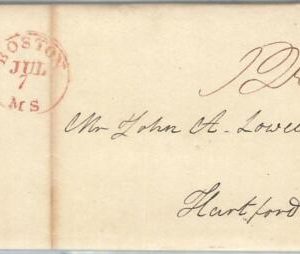 BOSTON
JUL
7
MS
Mr John A. Lowell
Hartford